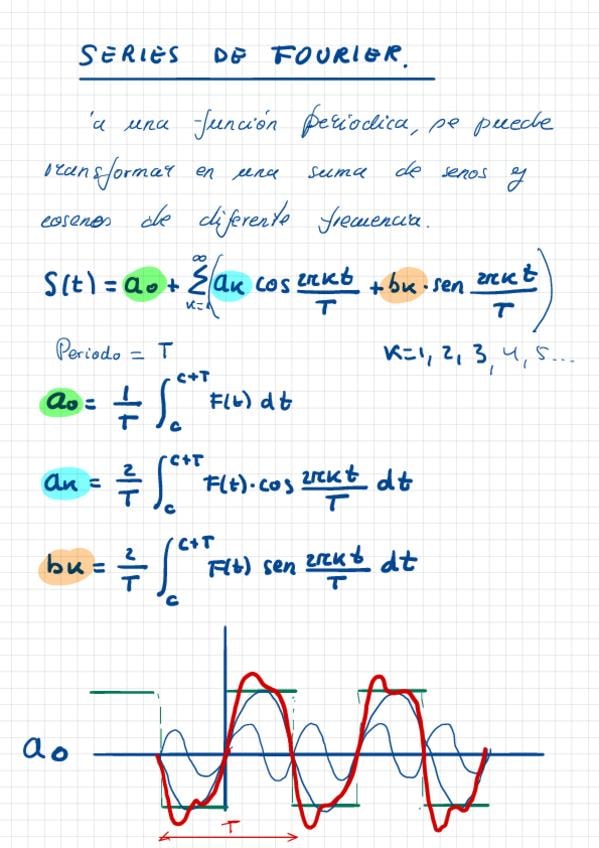 SERIES DE FOURIER.
'a una función periodica, se puede
transformar en una suma de senos y
cosenos de diferente frecuencia.
S(t) = a₀ + ∑_{k=1}^{∞} (aₖ cos 2πkt/T + bₖ · sen 2πkt/T)
Periodo = T
K=1, 2, 3, 4, 5...
a₀ = 1/T ∫_c^{c+T} F(t) dt
aₖ = 2/T ∫_c^{c+T} F(t) · cos 2πkt/T dt
bₖ = 2/T ∫_c^{c+T} F(t) sen 2πkt/T dt
a₀
T